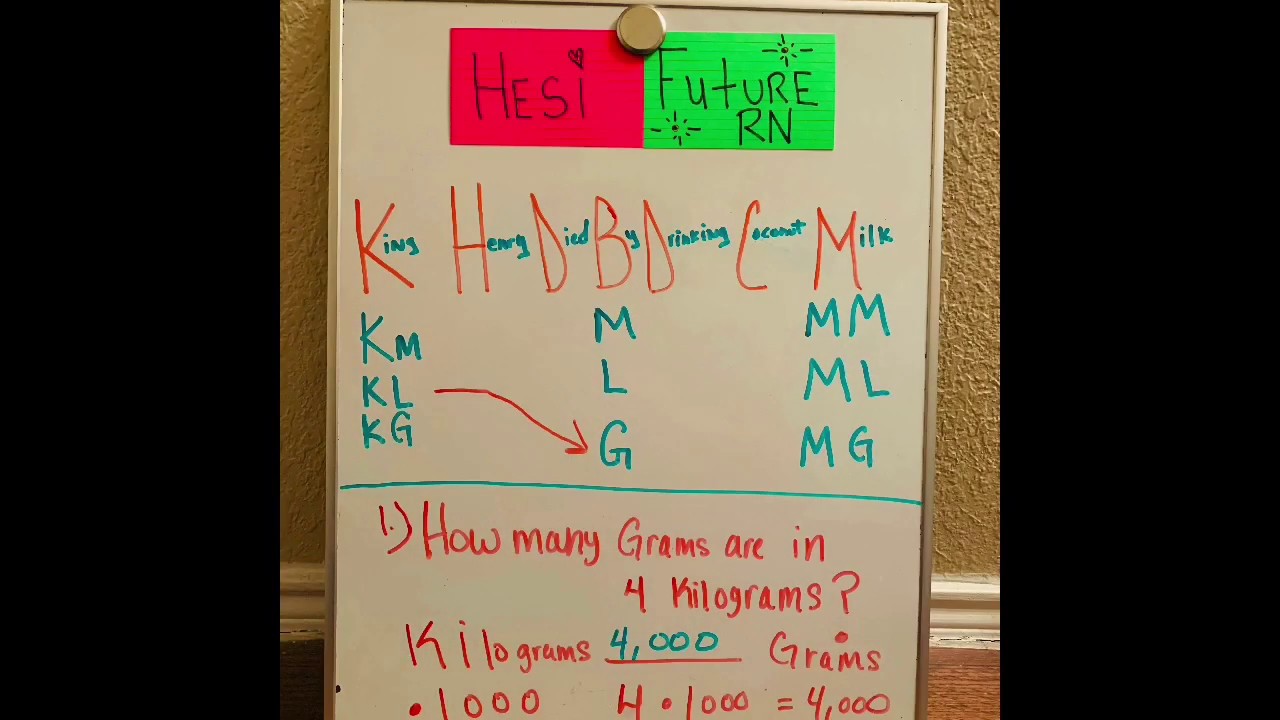 Hesi Future
RN
King Henry Died By Drinking Coconut Milk
KM M MM
KL L ML
KG G MG
1.) How many Grams are in
4 Kilograms?
Kilograms 4,000 Grams
•1000 4•1000 = 4,000